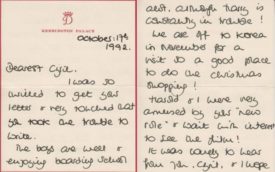 KENSINGTON PALACE
October. 17th
1992.
Dearest Cyril,
I was so
thrilled to get your
letter & very touched that
you took the trouble to
write.
The boys are well &
enjoying boarding school
although Harry is
constantly in trouble!
We are off to Korea
in November for a
visit so a good place
to do the Christmas
shopping!
& I were very
amused by your 'new
role' & wait with interest
to see the
It was lovely to hear
from you, Cyril, & I hope